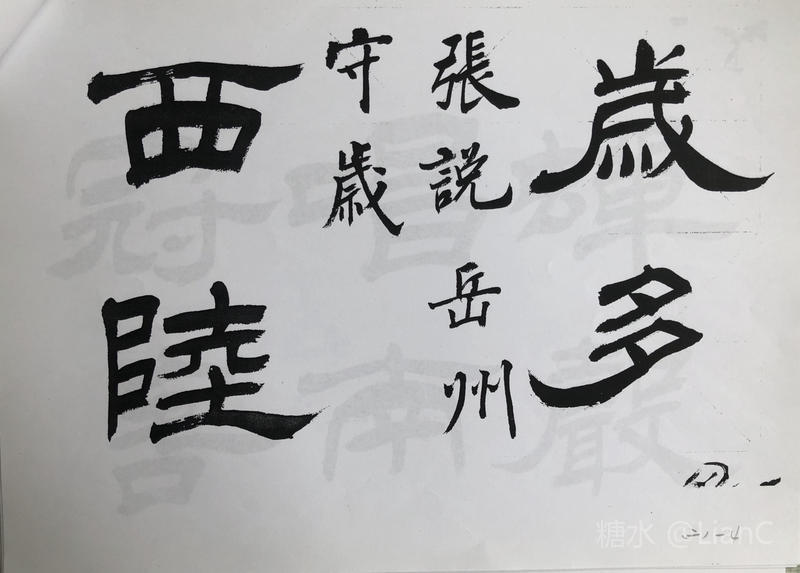 歲多
張説岳州
守歲
西陸
糖水 @LianC